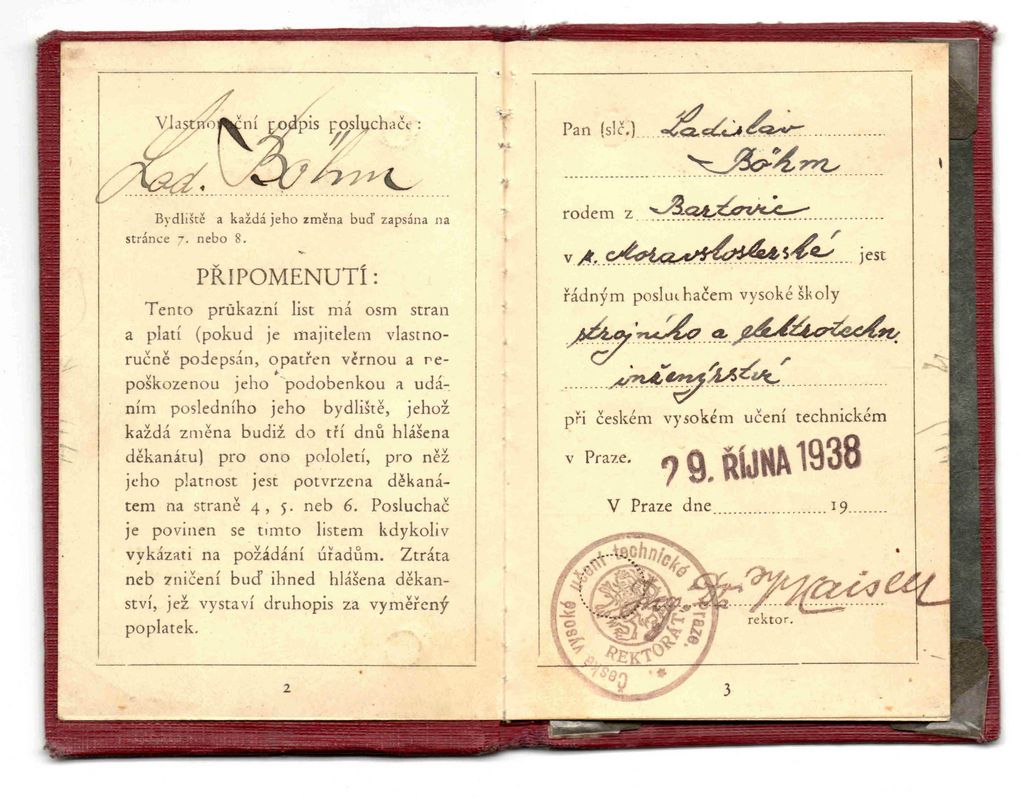 Vlastnoruční podpis posluchače:
Lad. Böhm
Bydliště a každá jeho změna buď zapsána na
stránce 7. nebo 8.
PŘIPOMENUTÍ:
Tento průkazní list má osm stran
a platí (pokud je majitelem vlastno-
ručně podepsán, opatřen věrnou a ne-
poškozenou jeho podobenkou a udá-
ním posledního jeho bydliště, jehož
každá změna budiž do tří dnů hlášena
děkanátu) pro ono pololetí, pro něž
jeho platnost jest potvrzena děkaná-
tem na straně 4, 5. neb 6. Posluchač
je povinen se tímto listem kdykoliv
vykázati na požádání úřadům. Ztráta
neb zničení buď ihned hlášena děkan-
ství, jež vystaví druhopis za vyměřený
poplatek.
2
Pan (slč.) Ladislav
Böhm
rodem z Bartovic
v k. Moravskoslezské jest
řádným posluchačem vysoké školy
strojního a elektrotechn.
inženýrství
při českém vysokém učení technickém
v Praze.
29. ŘÍJNA 1938
V Praze dne 19
České vysoké učení technické v Praze.
REKTORÁT
Dr
rektor.
3